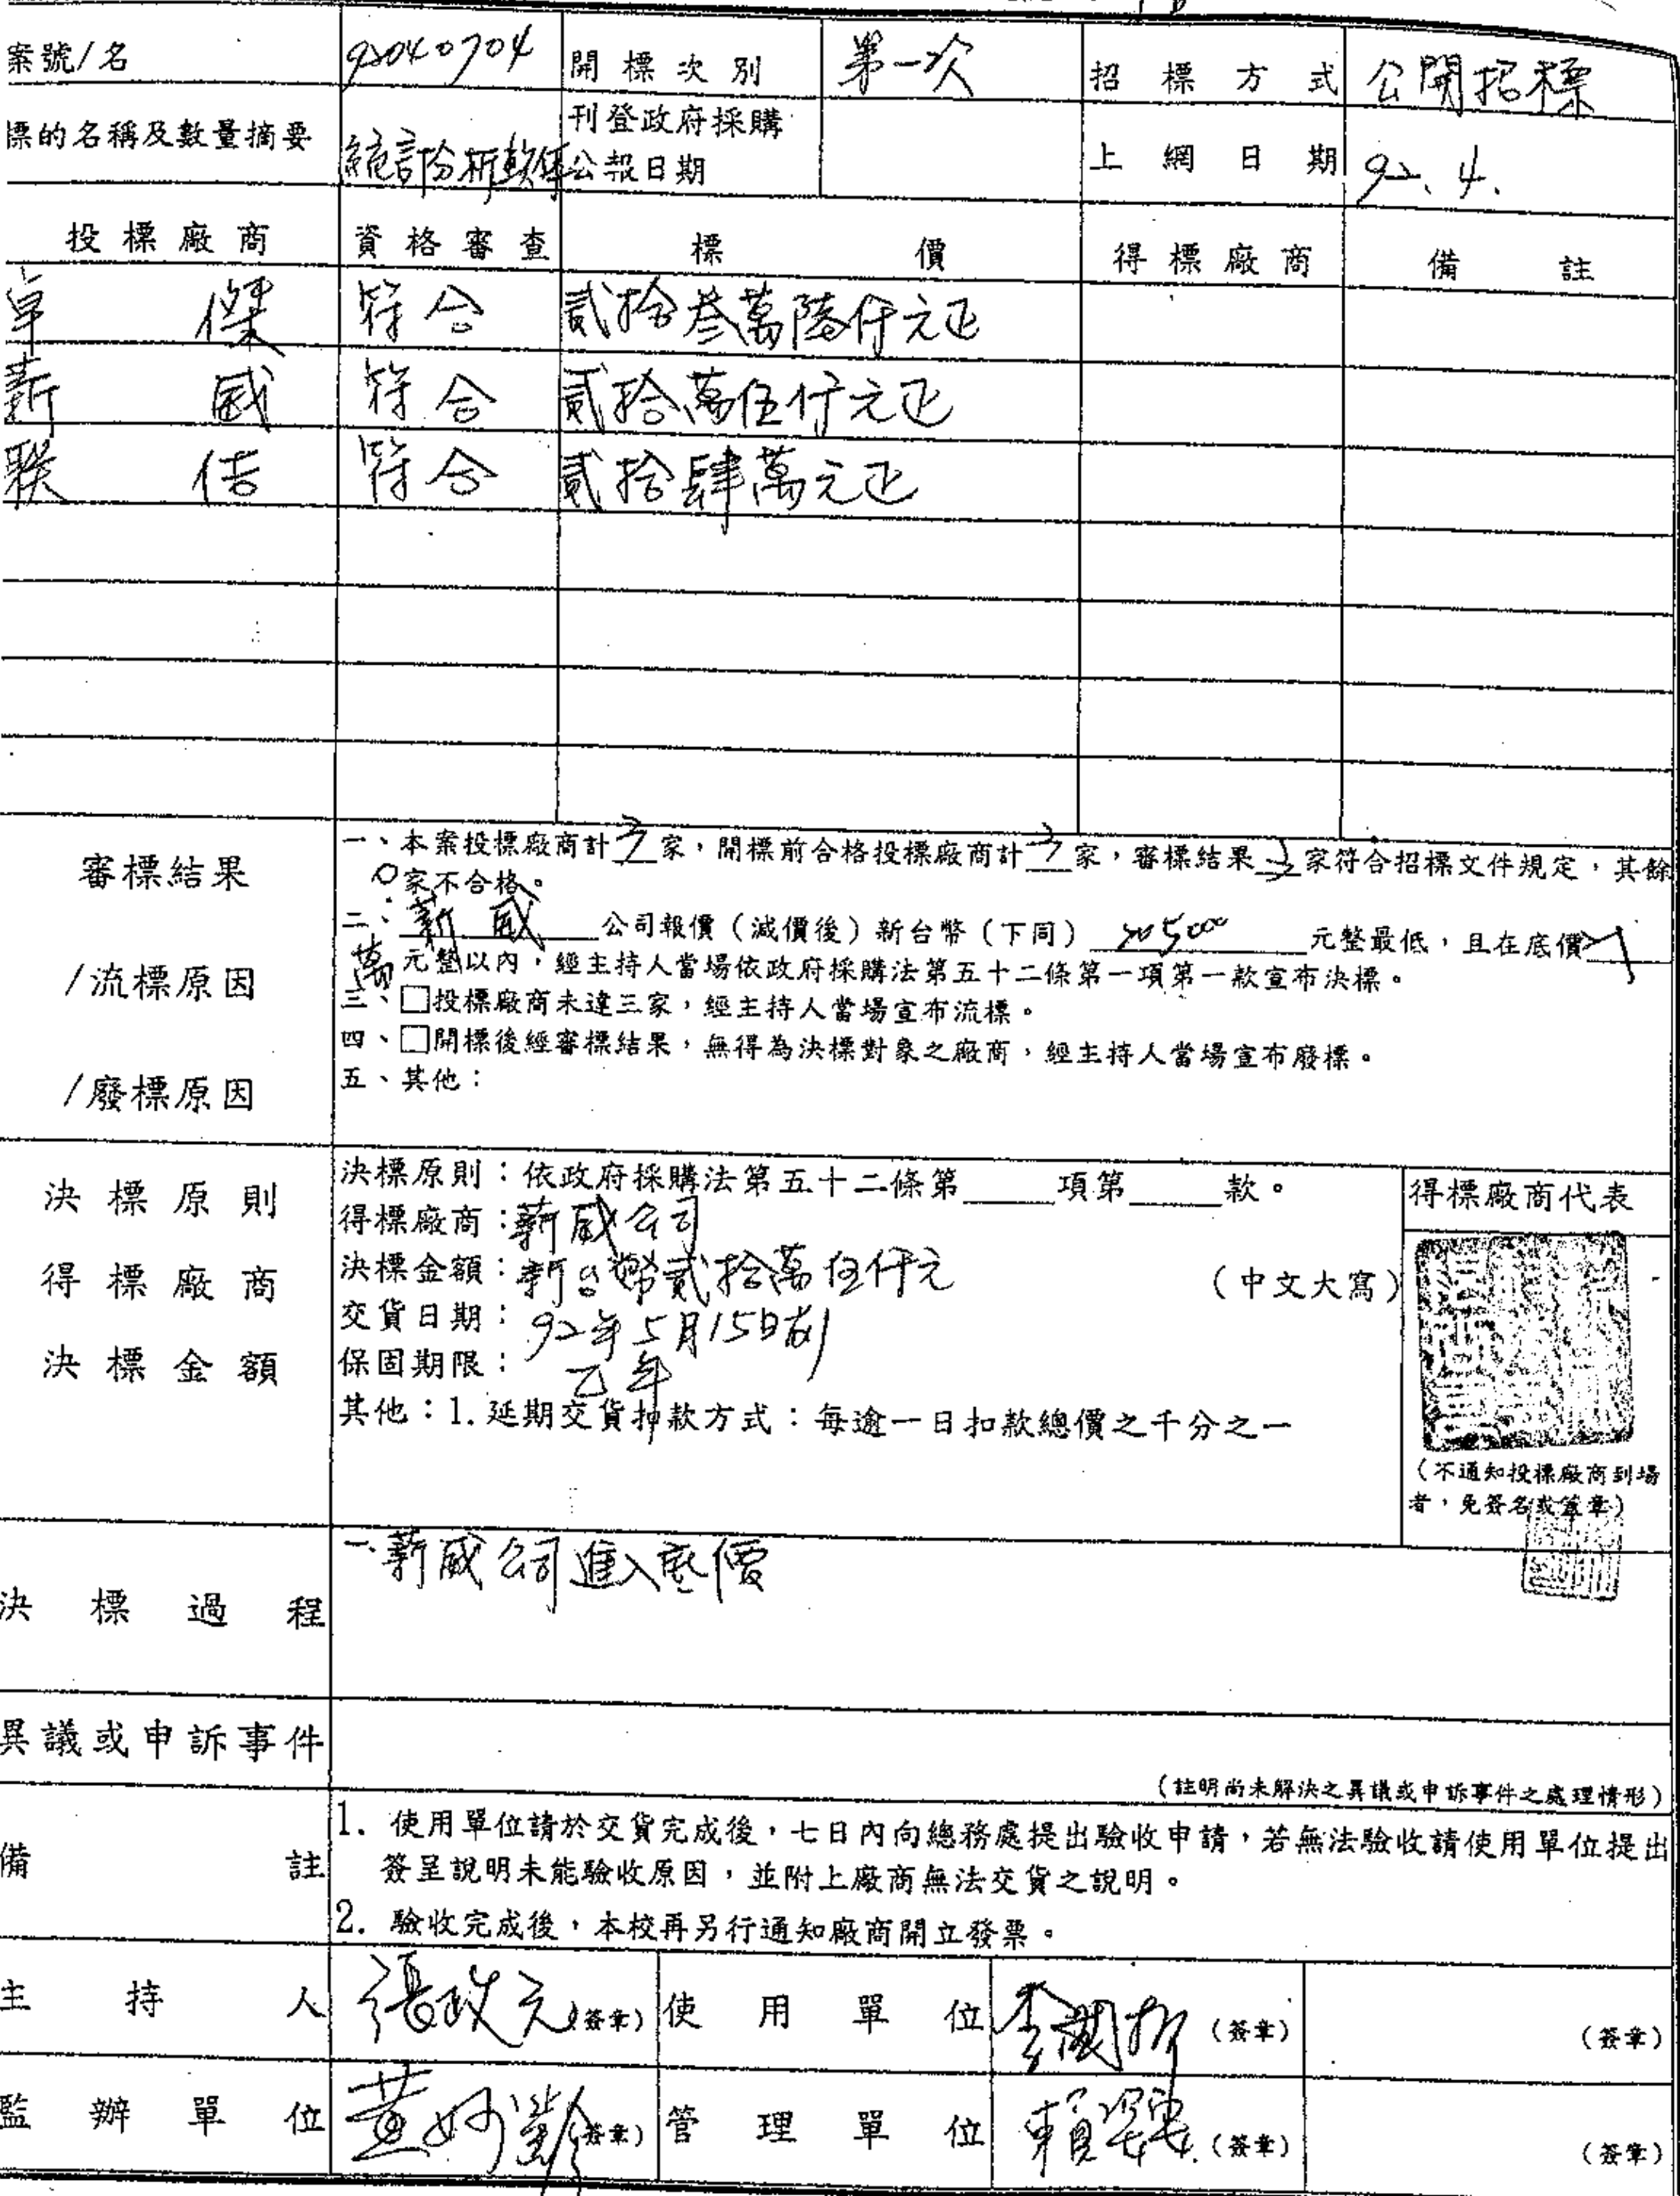 案號/名 92040704 開標次別 第一次 招標方式 公開招標
標的名稱及數量摘要 統計分析軟体 刊登政府採購公報日期 上網日期 92.4.
投標廠商 資格審查 標價 得標廠商 備註
卓傑 符合 貳拾叁萬陸仟元正
薪威 符合 貳拾萬伍仟元正
符合 貳拾肆萬元正
審標結果
/流標原因
/廢標原因
一、本案投標廠商計3家，開標前合格投標廠商計3家，審標結果3家符合招標文件規定，其餘
0家不合格。
二、薪威公司報價（減價後）新台幣（下同）205000元整最低，且在底價21
萬元整以內，經主持人當場依政府採購法第五十二條第一項第一款宣布決標。
三、□投標廠商未達三家，經主持人當場宣布流標。
四、□開標後經審標結果，無得為決標對象之廠商，經主持人當場宣布廢標。
五、其他：
決標原則
得標廠商
決標金額
決標原則：依政府採購法第五十二條第____項第____款。
得標廠商：薪威公司
決標金額：新台幣貳拾萬伍仟元（中文大寫）
交貨日期：92年5月15日前
保固期限：乙年
其他：1.延期交貨扣款方式：每逾一日扣款總價之千分之一
得標廠商代表
（不通知投標廠商到場
者，免簽名或蓋章）
決標過程 一.薪威公司進入底價
異議或申訴事件
（註明尚未解決之異議或申訴事件之處理情形）
備註
1. 使用單位請於交貨完成後，七日內向總務處提出驗收申請，若無法驗收請使用單位提出
簽呈說明未能驗收原因，並附上廠商無法交貨之說明。
2. 驗收完成後，本校再另行通知廠商開立發票。
主持人 張政元（簽章） 使用單位 （簽章） （簽章）
監辦單位 黃妙齡（簽章） 管理單位 （簽章） （簽章）